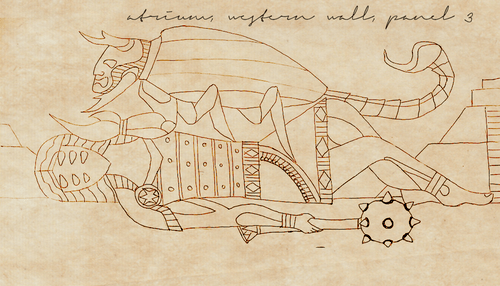 atrium, western wall, panel 3